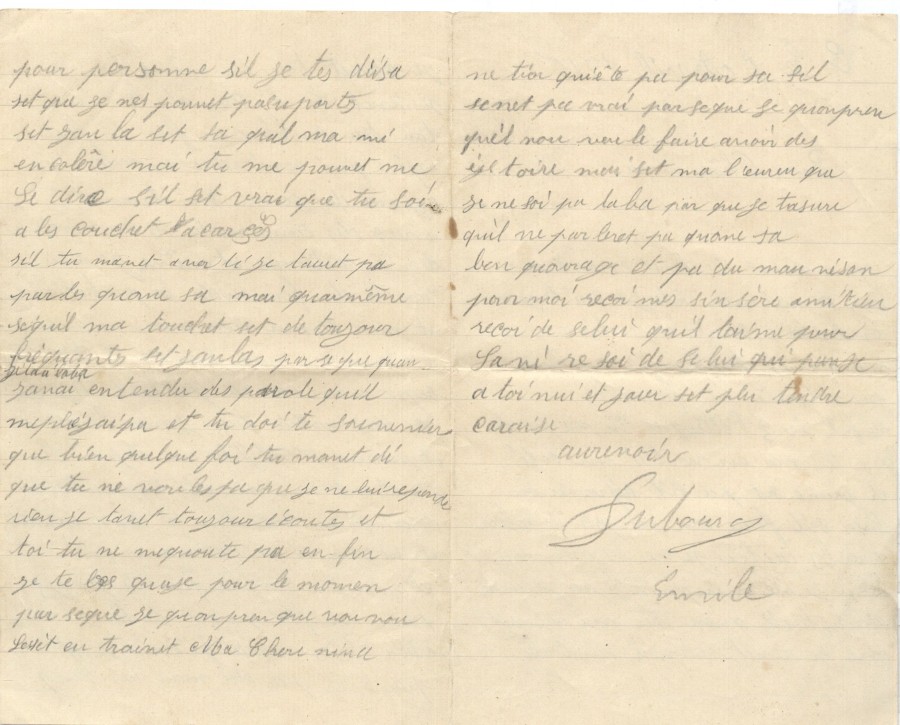 pour personne sil je tes disa
set que je nes pouvet pasuportes
set jan la set sa quil ma mi
en colère mai tu me pouvet me
le dire sil set vrai que tu soi
a les couchet
sil tu mavet averté je tauret pa
parles quome sa mai quanmême
sequil ma touchet set de toujour
fréquantes set janlas par se que quan
jetai laba
janai entendu dés parole quil
meplésaipa et tu doi te souvenier
que bien quelque foi tu mavet di
que tu ne voules pa que je ne lui reponde
rien je tavet toujour écoutes et
toi tu ne mequoute pa en fin
je te les quase pour le momen
par seque je quonpran que vou vou
soit en trainet Ma Chere nina
ne tin quiête pa pour sa sil
senet pa vrai parseque je quonpren
quil nou veule faire avoir des
istoire mai set ma l'eureu que
je ne soi pa laba par que je tasure
quil ne parleret pa quome sa
bon quourage et pa du mauvésan
pour moi reçoi mes sinsère amitieu
reçoi de selui quil taime pour
la vi resoi de selui qui panse
a toi nui et jour set plu tendre
caraise
aurevoir
Dubourg
Emile